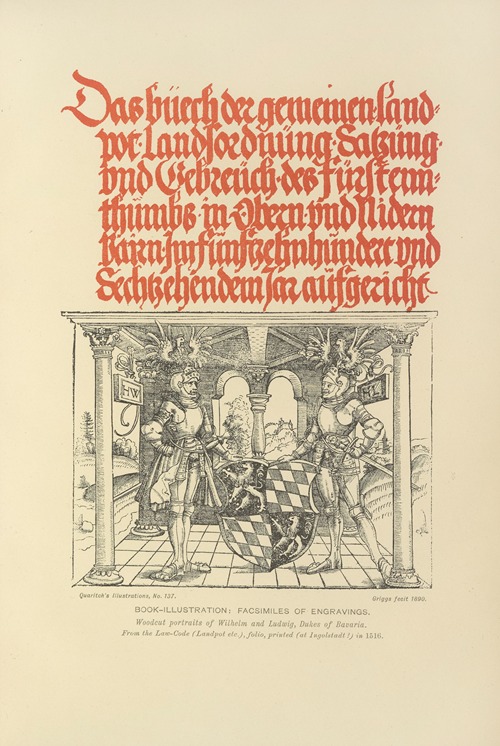 Das büech der gemeinen land-
pot· Landsordnüng· Satzüng·
vnd Gebreüch· des fürstenn-
thümbs· in Obern· vnd Nidern
Bairn· Jm fünftzehnhündert vnd
Sechtzehendem Jar aüfgericht
HW
HL
Quaritch's Illustrations, No. 137.
Griggs fecit 1890.
BOOK–ILLUSTRATION: FACSIMILES OF ENGRAVINGS.
Woodcut portraits of Wilhelm and Ludwig, Dukes of Bavaria.
From the Law-Code (Landpot etc.), folio, printed (at Ingolstadt?) in 1516.